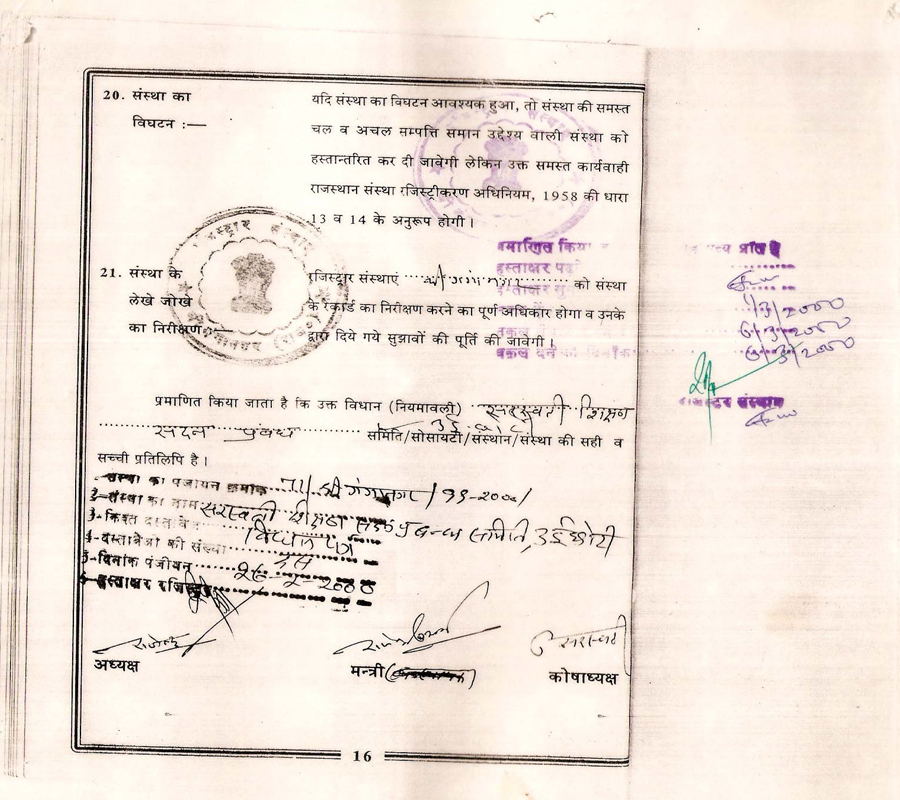 20. संस्था का
विघटन :—
यदि संस्था का विघटन आवश्यक हुआ, तो संस्था की समस्त
चल व अचल सम्पत्ति समान उद्देश्य वाली संस्था को
हस्तान्तरित कर दी जावेगी लेकिन उक्त समस्त कार्यवाही
राजस्थान संस्था रजिस्ट्रीकरण अधिनियम, 1958 की धारा
13 व 14 के अनुरूप होगी।
21. संस्था के
लेखे जोखे
का निरीक्षण
रजिस्ट्रार संस्थाएं को संस्था
के रेकार्ड का निरीक्षण करने का पूर्ण अधिकार होगा व उनके
द्वारा दिये गये सुझावों की पूर्ति की जावेगी।
प्रमाणित किया
1/3/2000
6/3/2000
6/3/2000
प्रमाणित किया जाता है कि उक्त विधान (नियमावली) सरस्वती शिक्षण
सदन प्रबंध समिति/सोसायटी/संस्थान/संस्था की सही व
सच्ची प्रतिलिपि है।
संस्था का पंजीयन क्रमांक श्रीगंगानगर/99-2000/
2-संस्था का नाम सरस्वती शिक्षण सदन प्रबन्ध समिति,
3-किस्त दस्तावेज विधान पत्र
4-दस्तावेजों की संख्या
5-दिनांक पंजीयन 2000
हस्ताक्षर रजिस्ट्रार
अध्यक्ष
मन्त्री
सरस्वती
कोषाध्यक्ष
16